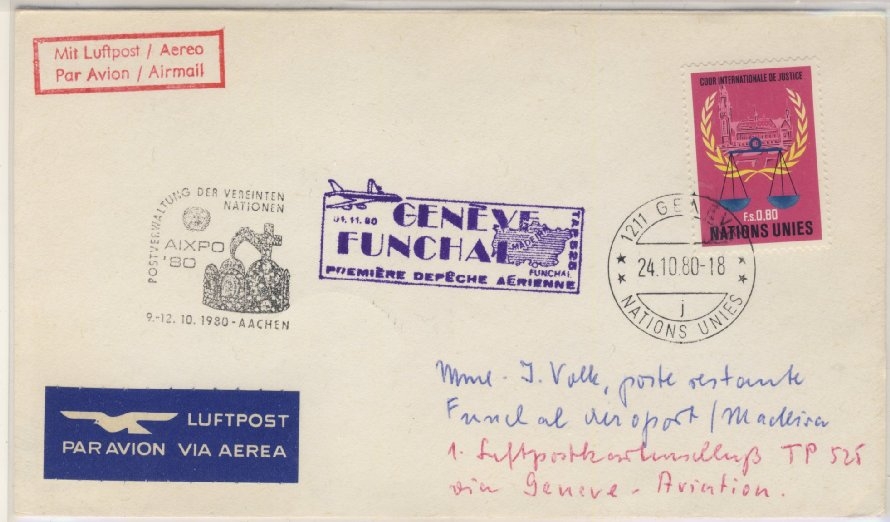 Mit Luftpost / Aereo
Par Avion / Airmail
COUR INTERNATIONALE DE JUSTICE
F.s.0,80
NATIONS UNIES
POSTVERWALTUNG DER VEREINTEN
NATIONEN
AIXPO
'80
9.-12. 10. 1980 - AACHEN
01.11.80
GENÈVE
FUNCHAL
MADÈRE
FUNCHAL
TP 525
PREMIÈRE DEPÊCHE AÉRIENNE
1211 GENÈVE
24.10.80-18
j
NATIONS UNIES
Mme. J. Volk, poste restante
Funchal Aeroport / Madeira
1. Luftpostkartenschluß TP 525
via Geneve - Aviation.
LUFTPOST
PAR AVION VIA AEREA